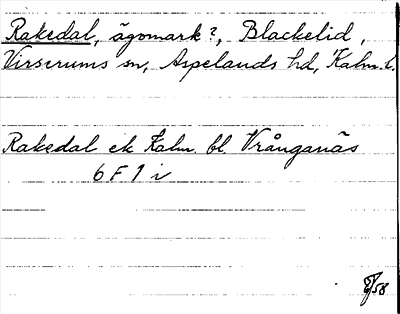 Rakedal, ägomark?, Blackelid,
Virserums sn, Aspelands hd, Kalm. l.
Rakedal ek Kalm bl. Vrånganäs
6 F 1 i
/58